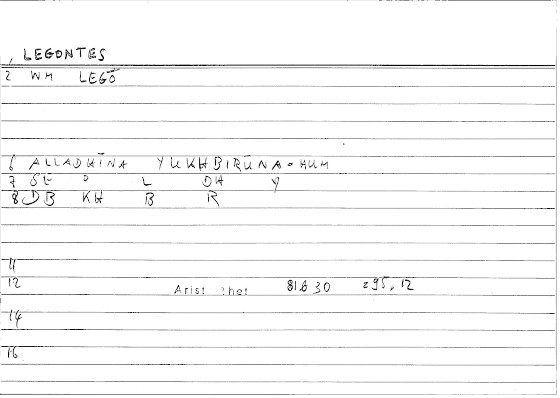 , LEGONTES
2 WM LEGŌ
6 ALLADHĪNA YUKHBIRŪNA-HUM
7 SE P L DH Y
8 DB KH B R
11
12 Arist Rhet 81630 295,12
14
16